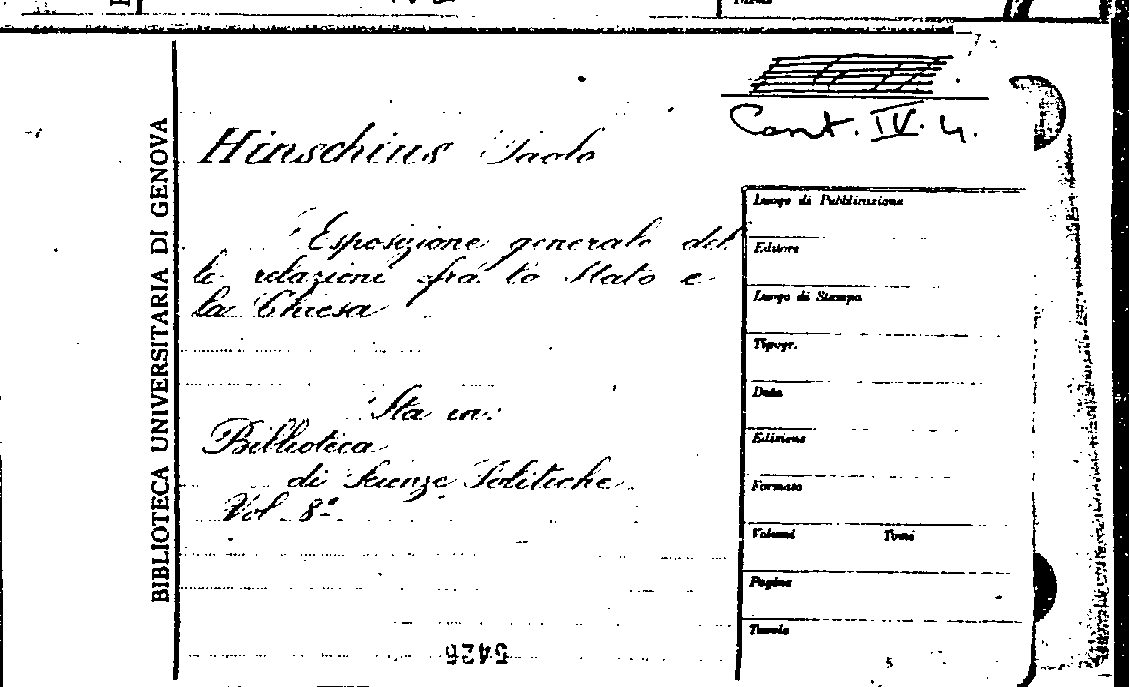 Cont. IV. 4.
BIBLIOTECA UNIVERSITARIA DI GENOVA
Hinschius Paolo
Esposizione generale del
le relazioni fra lo Stato e
la Chiesa
Sta in:
Biblioteca
di Scienze Politiche
Vol. 8º
5426
Luogo di Pubblicazione
Editore
Luogo di Stampa
Tipogr.
Data
Edizione
Formato
Volumi Tomi
Pagine
Tavole
5